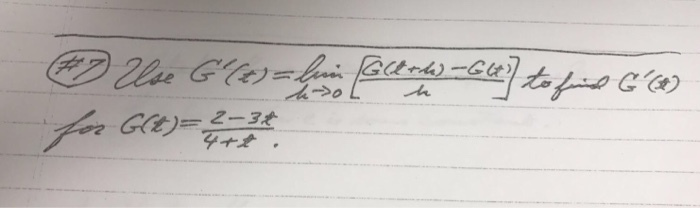 #7 Use G'(t) = lim h→0 [G(t+h) - G(t) / h] to find G'(t)
for G(t) = 2-3t / 4+t .